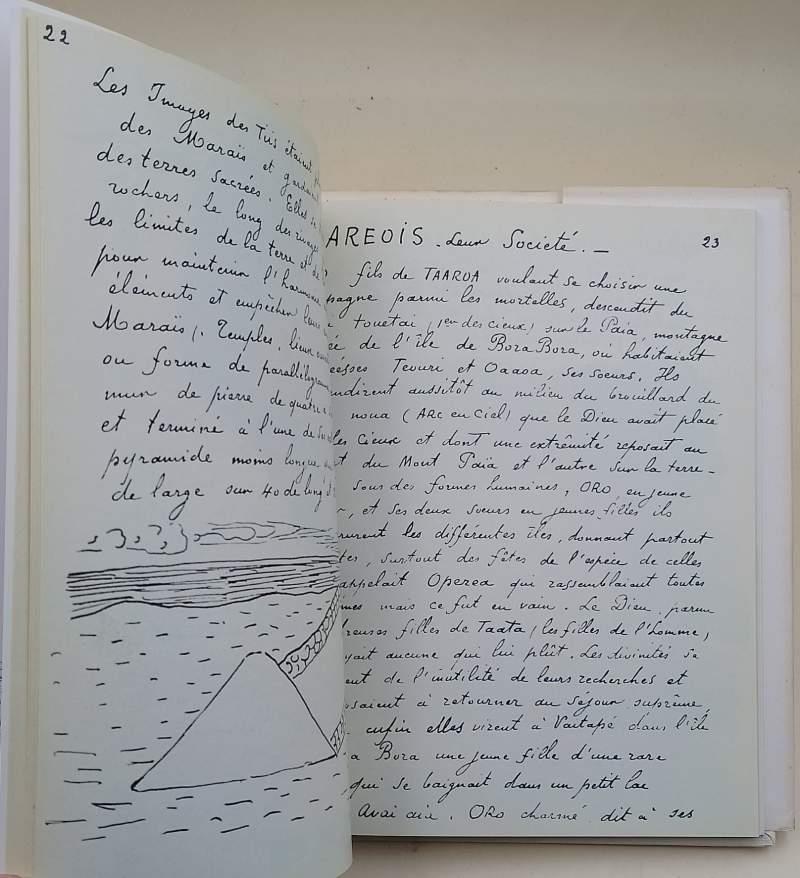 22
Les Images des Tiis étaient
des Maraïs et
des terres sacrées. Elles
rochers, le long des rivages
les limites de la terre et de
pour maintenir l'harmonie
éléments et empêcher leurs
Maraïs (. Temples, lieux
ou forme de parallélogramme
mur de pierre de quatre
et terminé à l'une de
pyramide moins longue
de large sur 40 de long
23
AREOIS - Leur Societé. -
fils de TAAROA voulant se choisir une
pagne parmi les mortelles, descendit du
Touetai (1er des cieux) sur le Païa, montagne
de l'île de Bora Bora, où habitaient
éesses Teouri et Oaaoa, ses soeurs. Ils
ndirent aussitôt au milieu du brouillard du
noua (ARC en Ciel) que le Dieu avait placé
les Cieux et dont une extrêmité reposait au
t du Mont Païa et l'autre sur la terre -
sous des formes humaines, ORO, en jeune
, et ses deux soeurs en jeunes filles ils
rurent les différentes îles, donnant partout
tes, surtout des fêtes de l'espèce de celles
appelait Operea qui rassemblaient toutes
mes mais ce fut en vain. Le Dieu, parmi
breuses filles de Taata, (les filles de l'homme,
yait aucune qui lui plût. Les divinités se
ent de l'inutilité de leurs recherches et
saient à retourner au séjour suprême,
enfin elles virent à Vaïtapé dans l'île
a Bora une jeune fille d'une rare
qui se baignait dans un petit lac
Avai aïa. ORO charmé dit à ses